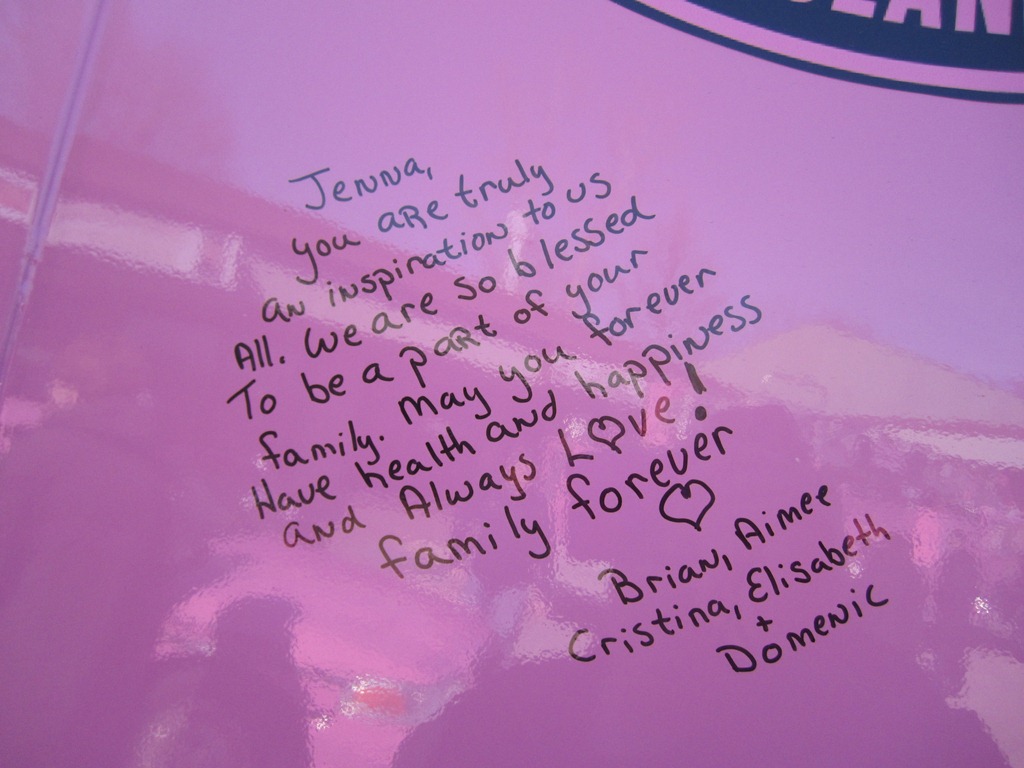 Jenna,
you are truly
an inspiration to us
All. We are so blessed
To be a part of your
family. May you forever
Have health and happiness
and Always Love!
family forever
♡
Brian, Aimee
Cristina, Elisabeth
+
Domenic